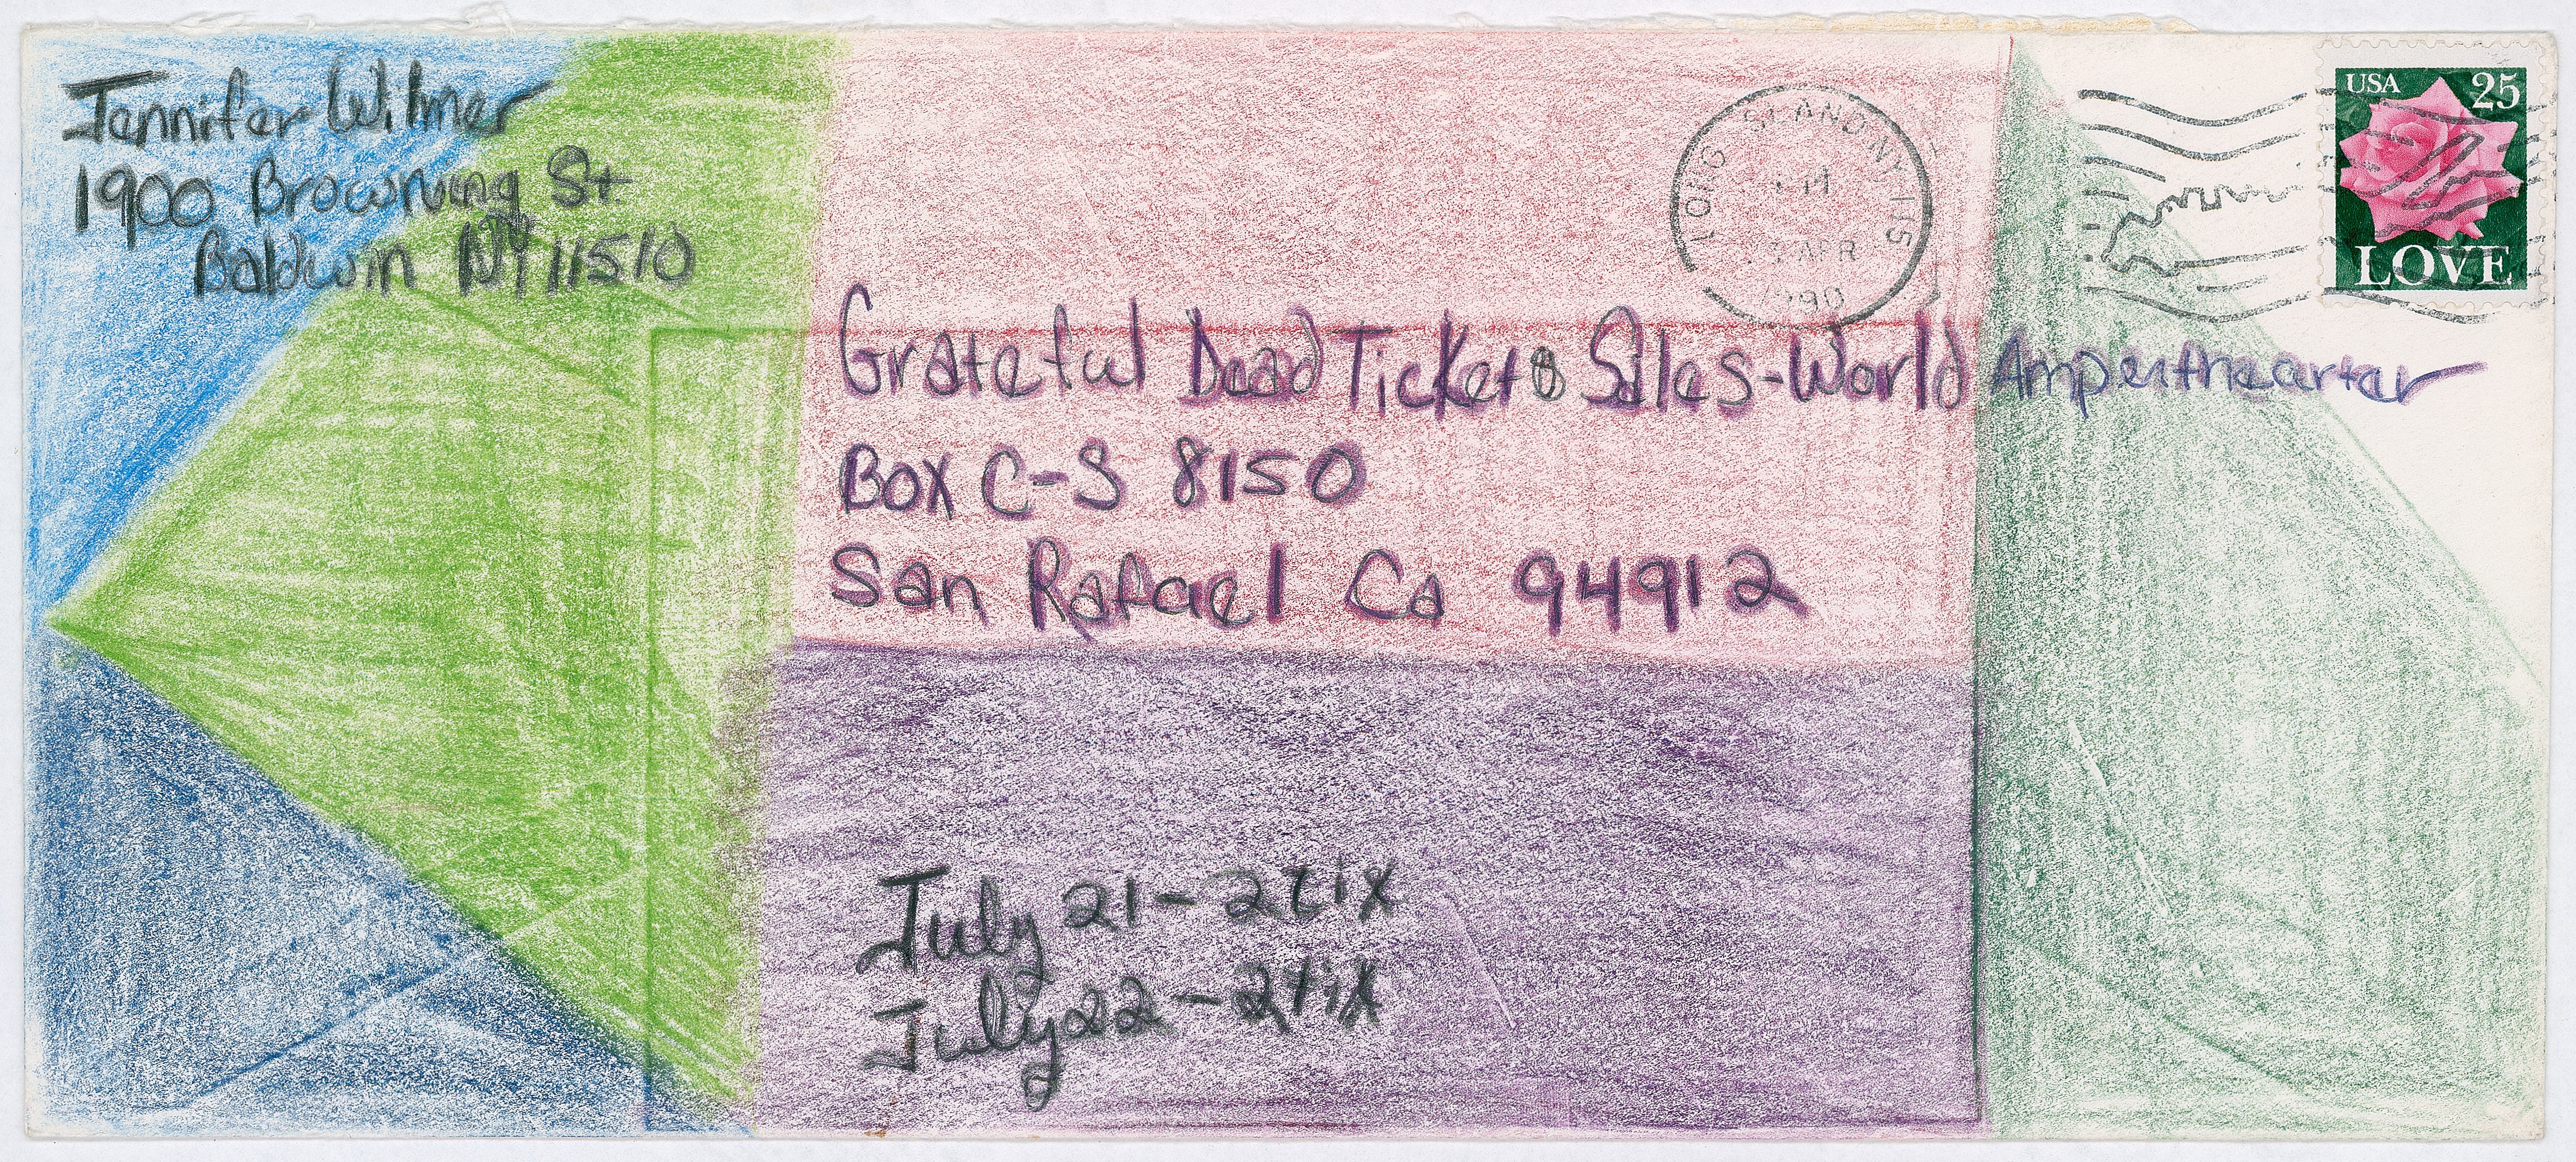 Jennifer Wilmer
1900 Browning St.
Baldwin NY 11510
LONG ISLAND NY 115
PM
APR
1990
USA 25
LOVE
Grateful Dead Tickets Sales-World Ampertheartar
Box C-S 8150
San Rafael Ca 94912
July 21-2tix
July 22-2tix